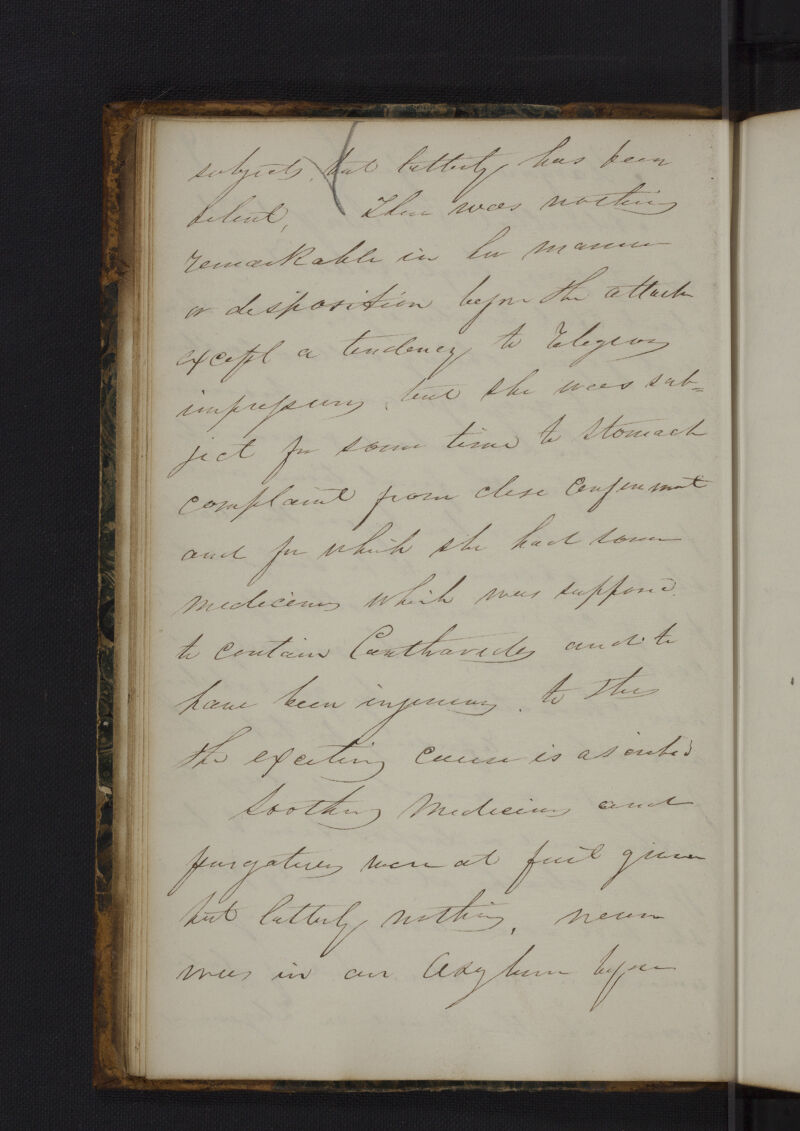 subjects, but latterly has been
silent, There was nothing
remarkable in her manner
or disposition before the attack
except a tendency to religious
impressions, but she was sub=
ject for some time to stomach
complaint from close confinement
and for which she had some
medicines which was supposed
to contain Cantharides and to
have been injurious. to this
the exciting cause is ascribed
Soothing Medicines and
purgatives were at first given
but latterly nothing. never
was in an Asylum before